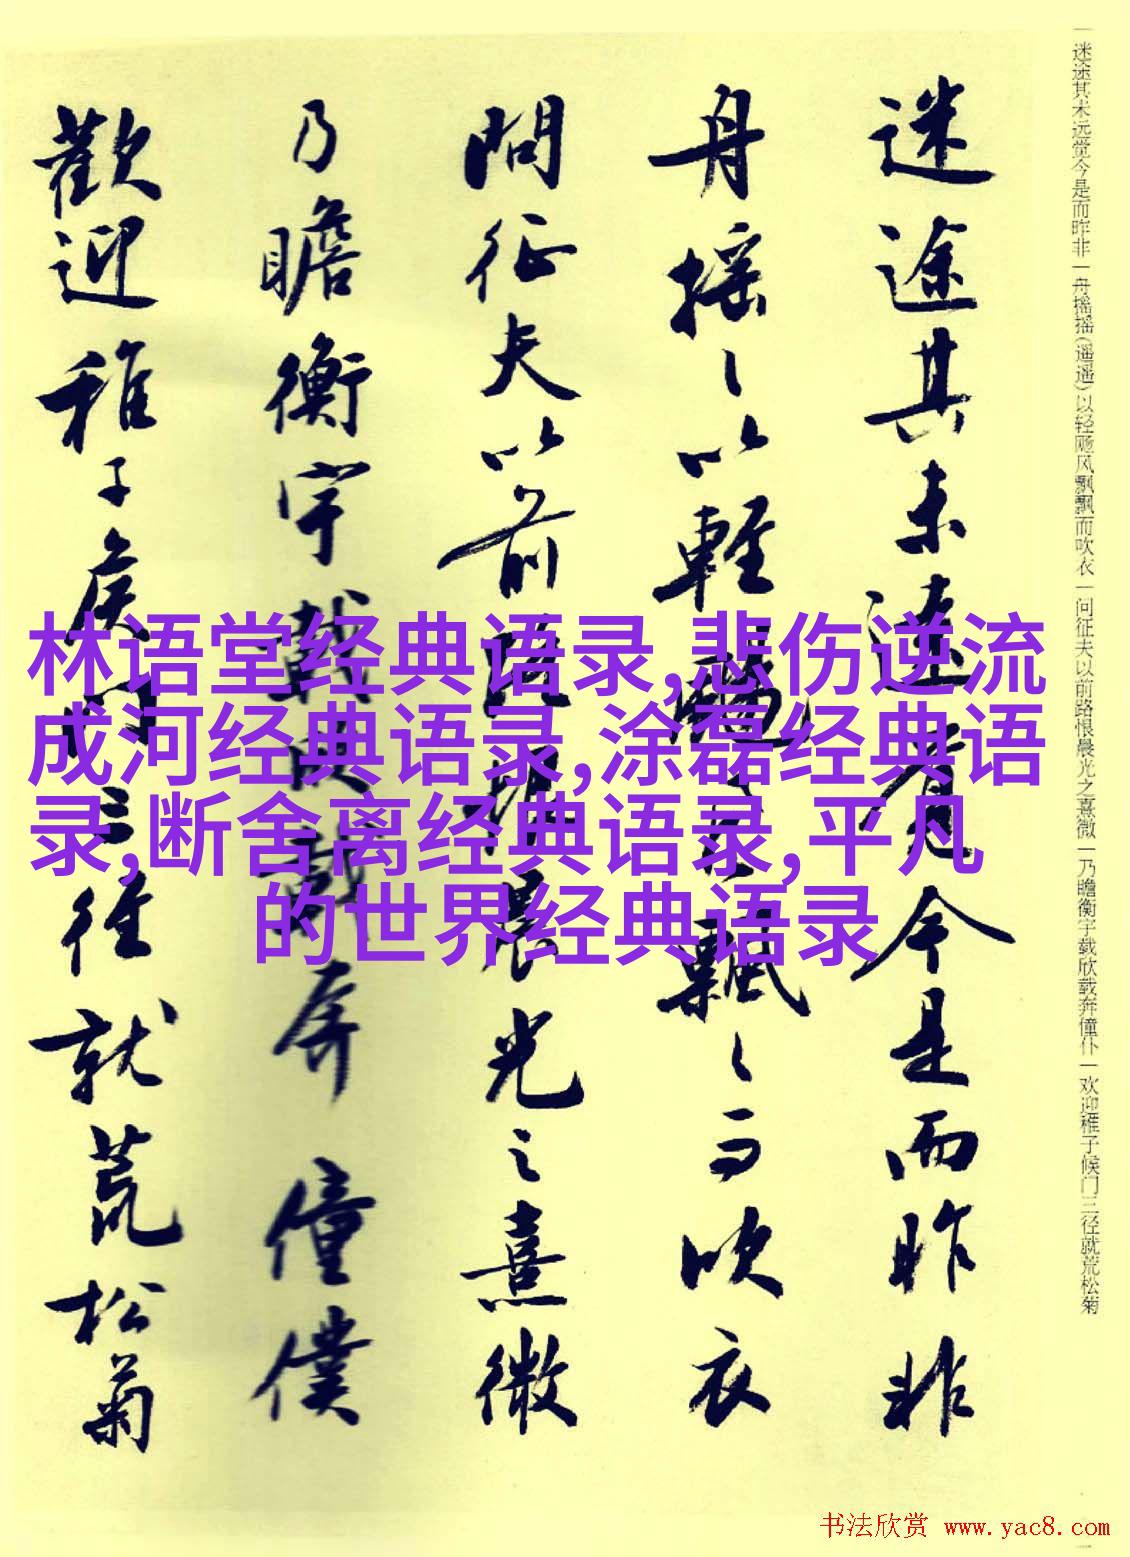 迷途其未远觉今是而昨非一舟摇摇(遥遥)以轻飏风飘飘而吹衣一问征夫以前路恨晨光之熹微一乃瞻衡宇载欣载奔僮仆一欢迎稚子候门三径就荒松菊
迷途其未遠覺今是而昨非
舟摇〻以輕颺風飄〻而吹衣
問征夫以前路恨晨光之熹微
乃瞻衡宇載欣載奔僮僕
歡迎稚子候門三徑就荒松菊
林语堂经典语录,悲伤逆流
成河经典语录,涂磊经典语
录,断舍离经典语录,平凡
的世界经典语录
书法欣赏 www.yac8.com